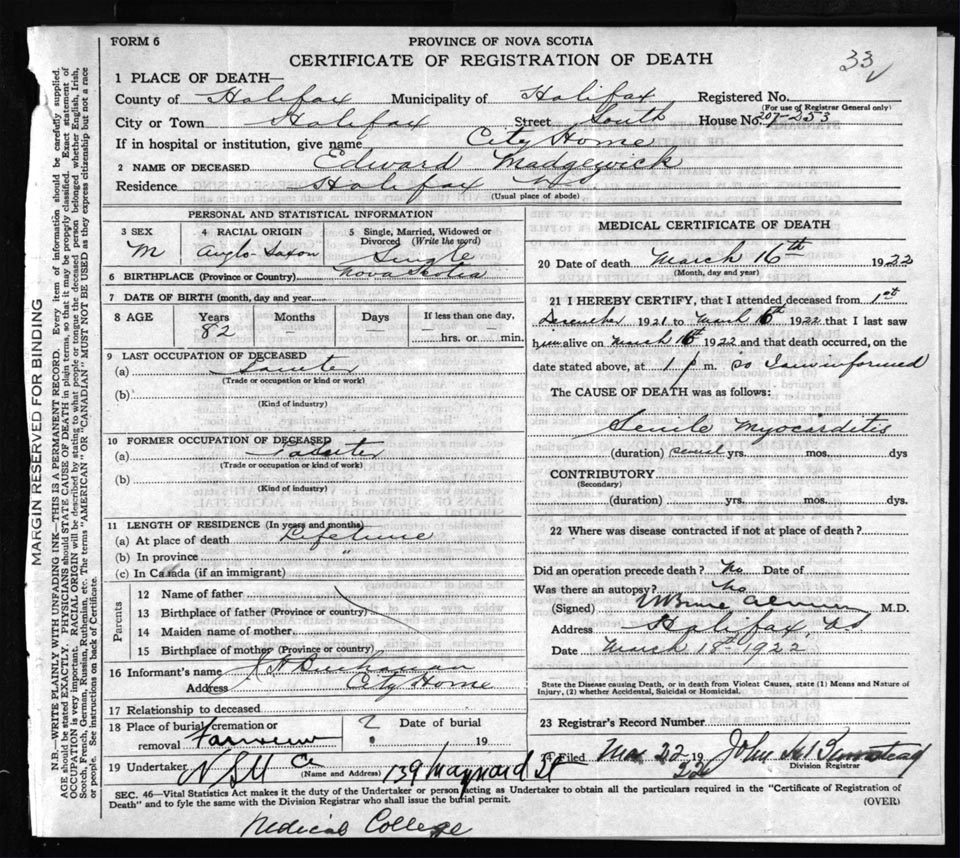 FORM 6
PROVINCE OF NOVA SCOTIA
CERTIFICATE OF REGISTRATION OF DEATH
33
1 PLACE OF DEATH—
County of Halifax Municipality of Halifax Registered No.
(For use of Registrar General only)
City or Town Halifax Street South House No. 207-253
If in hospital or institution, give name City Home
2 NAME OF DECEASED Edward Madgewick
Residence Halifax NS
(Usual place of abode)
PERSONAL AND STATISTICAL INFORMATION
3 SEX M
4 RACIAL ORIGIN Anglo-Saxon
5 Single, Married, Widowed or Divorced (Write the word) Single
6 BIRTHPLACE (Province or Country) Nova Scotia
7 DATE OF BIRTH (month, day and year)
8 AGE Years 82 Months — Days — If less than one day, hrs. or min.
9 LAST OCCUPATION OF DECEASED
(a) Painter
(Trade or occupation or kind or work)
(b)
(Kind of industry)
10 FORMER OCCUPATION OF DECEASED
(a) Painter
(Trade or occupation or kind of work)
(b)
(Kind of industry)
11 LENGTH OF RESIDENCE (In years and months)
(a) At place of death Lifetime
(b) In province "
(c) In Canada (if an immigrant)
Parents
12 Name of father
13 Birthplace of father (Province or country)
14 Maiden name of mother
15 Birthplace of mother (Province or country)
16 Informant's name Buchanan
Address City Home
17 Relationship to deceased
18 Place of burial, cremation or removal Fairview ? Date of burial 19
19 Undertaker N S M C (Name and Address) 139 Maynard St
MEDICAL CERTIFICATE OF DEATH
20 Date of death March 16th 1922
(Month, day and year)
21 I HEREBY CERTIFY, that I attended deceased from 1st
December 1921 to March 16 1922 that I last saw
him alive on March 16 1922 and that death occurred, on the
date stated above, at 1 p m. so I am informed
The CAUSE OF DEATH was as follows:
Senile Myocarditis
(duration) several yrs. mos. dys
CONTRIBUTORY
(Secondary)
(duration) yrs. mos. dys.
22 Where was disease contracted if not at place of death?
Did an operation precede death? No Date of
Was there an autopsy? No
(Signed) M.D.
Address Halifax, NS
Date March 18th 1922
State the Disease causing Death, or in Death from Violent Causes, state (1) Means and Nature of
Injury, (2) whether Accidental, Suicidal or Homicidal.
23 Registrar's Record Number
24 Filed Mar 22 19 22 John
Division Registrar
SEC. 46—Vital Statistics Act makes it the duty of the Undertaker or person acting as Undertaker to obtain all the particulars required in the "Certificate of Registration of
Death" and to fyle the same with the Division Registrar who shall issue the burial permit. (OVER)
Medical College
MARGIN RESERVED FOR BINDING
N.B.—WRITE PLAINLY WITH UNFADING INK—THIS IS A PERMANENT RECORD. Every item of information should be carefully supplied.
AGE should be stated EXACTLY. PHYSICIANS should STATE CAUSE OF DEATH in plain terms, so that it may be properly classified. Exact statement of
OCCUPATION is very important. RACIAL ORIGIN will be described by stating to what people or tongue the deceased person belonged, whether English, Irish,
Scotch, French, German, Russian, Ruthenian, etc. The terms "AMERICAN" OR "CANADIAN" MUST NOT BE USED as they express citizenship but not a race
or people. See instructions on back of Certificate.